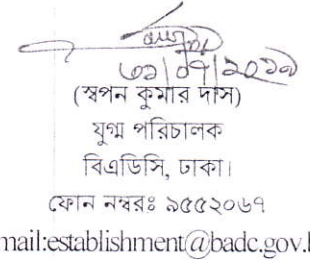 ৩১/০৭/২০১৯
(স্বপন কুমার দাস)
যুগ্ম পরিচালক
বিএডিসি, ঢাকা।
ফোন নম্বরঃ ৯৫৫২০৬৭
mail:establishment@badc.gov.b